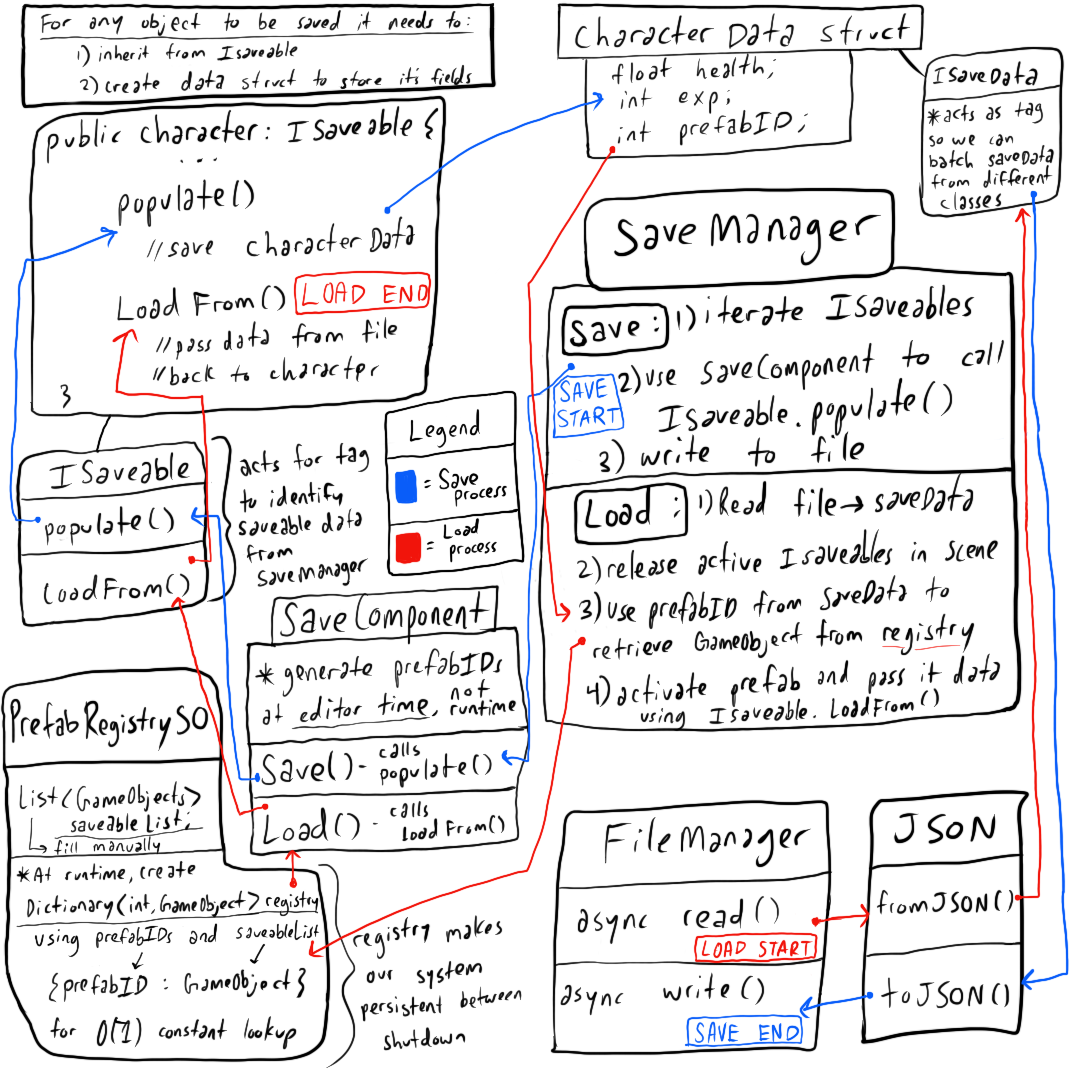 For any object to be saved it needs to:
1) inherit from ISaveable
2) create data struct to store it's fields
public character: ISaveable {
...
populate()
//save characterData
Load From() LOAD END
//pass data from file
//back to character
}
ISaveable
populate()
LoadFrom()
acts for tag
to identify
saveable data
from
saveManager
Legend
= Save
process
= Load
process
Character Data struct
float health;
int exp;
int prefabID;
ISaveData
*acts as tag
so we can
batch saveData
from different
classes
Save Manager
Save: 1) iterate ISaveables
SAVE
START
2) use saveComponent to call
ISaveable.populate()
3) write to file
Load: 1) Read file → saveData
2) release active ISaveables in scene
3) use prefabID from saveData to
retrieve GameObject from registry
4) activate prefab and pass it data
using ISaveable.LoadFrom()
SaveComponent
* generate prefabIDs
at editor time, not
runtime
Save() - calls
populate()
Load() - calls
LoadFrom()
PrefabRegistrySO
List<GameObjects>
saveableList;
fill manually
*At runtime, create
Dictionary<int, GameObject> registry
using prefabIDs and saveableList
{prefabID : GameObject}
for O(1) constant lookup
registry makes
our system
persistent between
shutdown
FileManager
async read()
LOAD START
async write()
SAVE END
JSON
fromJSON()
toJSON()